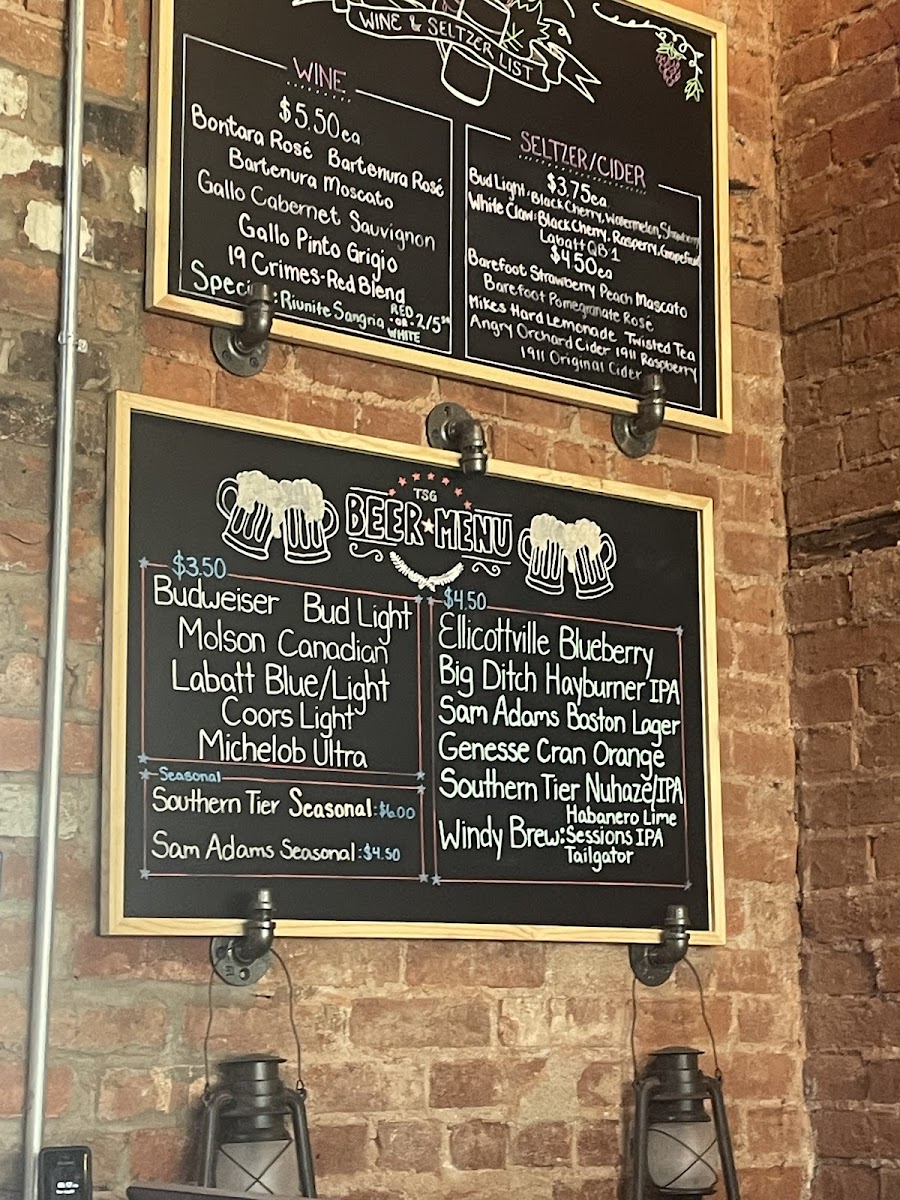 WINE & SELTZER LIST
WINE
$5.50ea
Bontara Rosé Bartenura Rosé
Bartenura Moscato
Gallo Cabernet Sauvignon
Gallo Pinto Grigio
19 Crimes-Red Blend
Riunite Sangria RED -OR- WHITE 2/5
SELTZER/CIDER
$3.75ea
Bud Light: Black Cherry, Watermelon, Strawberry
White Claw: Black Cherry, Rasperry, Grapefruit
Labatt QB 1
$4.50ea
Barefoot Strawberry Peach Mascato
Barefoot Pomegranate Rose
Mikes Hard Lemonade Twisted Tea
Angry Orchard Cider 1911 Raspberry
1911 Original Cider
TSG
BEER MENU
$3.50
Budweiser Bud Light
Molson Canadian
Labatt Blue/Light
Coors Light
Michelob Ultra
Seasonal
Southern Tier Seasonal: $6.00
Sam Adams Seasonal: $4.50
$4.50
Ellicottville Blueberry
Big Ditch Hayburner IPA
Sam Adams Boston Lager
Genesse Cran Orange
Southern Tier Nuhaze/IPA
Habanero Lime
Windy Brew: Sessions IPA
Tailgator